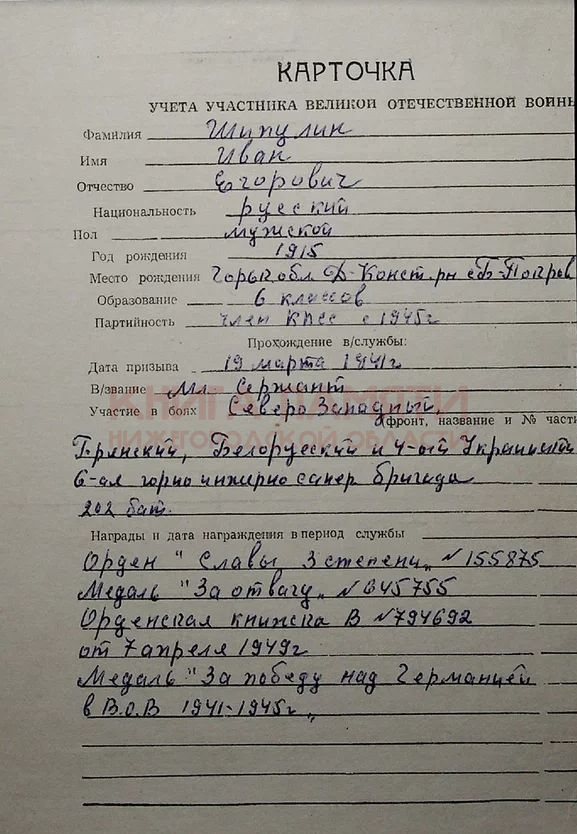 КАРТОЧКА
УЧЕТА УЧАСТНИКА ВЕЛИКОЙ ОТЕЧЕСТВЕННОЙ ВОЙНЫ
Фамилия Шипулин
Имя Иван
Отчество Егорович
Национальность русский
Пол мужской
Год рождения 1915
Место рождения Горьк обл Д-Конст. рн с Б-Погрев
Образование 6 классов
Партийность член КПСС с 1945г
Прохождение в/службы:
Дата призыва 19 марта 1941г
В/звание Мл. Сержант
КНИГА ПАМЯТИ
Участие в боях Северо Западный,
(фронт, название и № части
НИЖЕГОРОДСКОЙ ОБЛАСТИ
Брянский, Белоруский и 4-ый Украински
6-ая горно инжерно сапер бригада
202 бат.
Награды и дата награждения в период службы
Орден "Славы 3 степени" №155875
Медаль "За отвагу" №645755
Орденская книжка В №794692
от 7 апреля 1949г
Медаль "За победу над Германией
в В.О.В 1941-1945г"